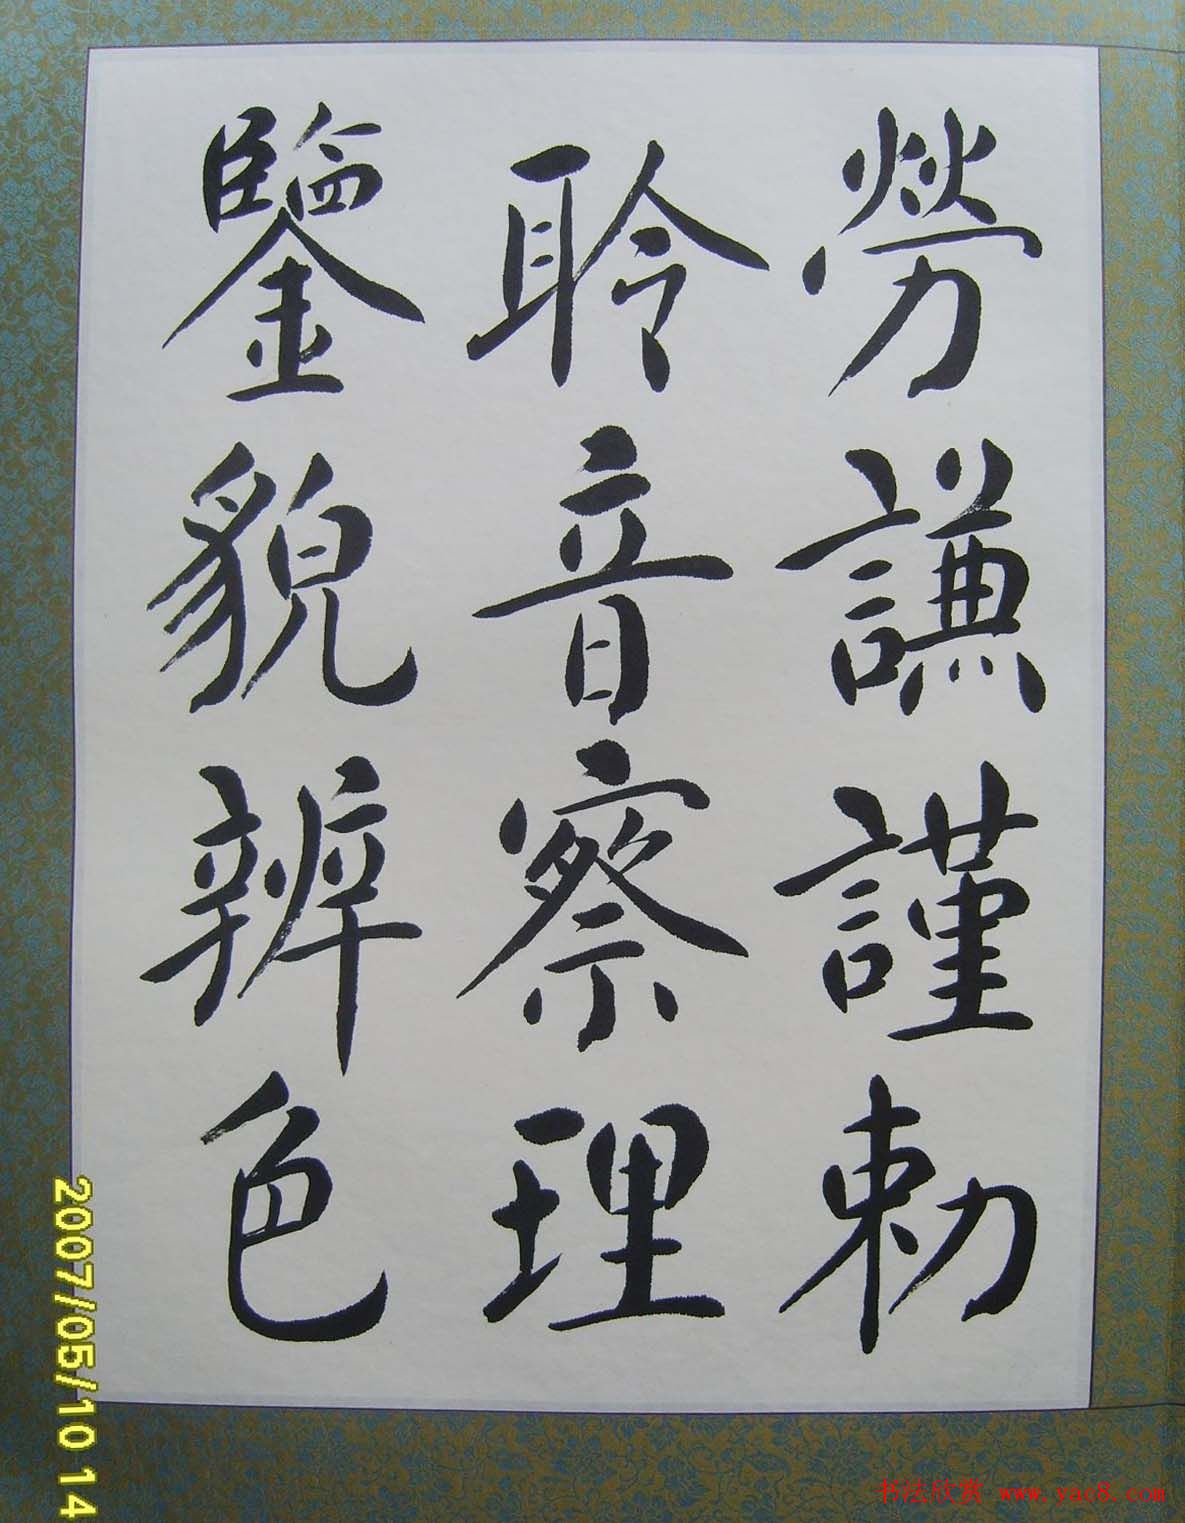 勞謙謹勅
聆音察理
鑒貌辨色
2007/05/10 14
书法欣赏 www.yac8.com